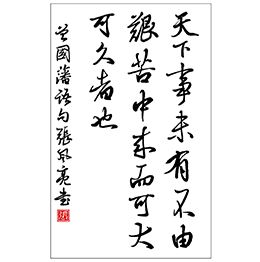 天下事未有不由
艱苦中来而可大
可久者也
曾國藩语句張風亮书